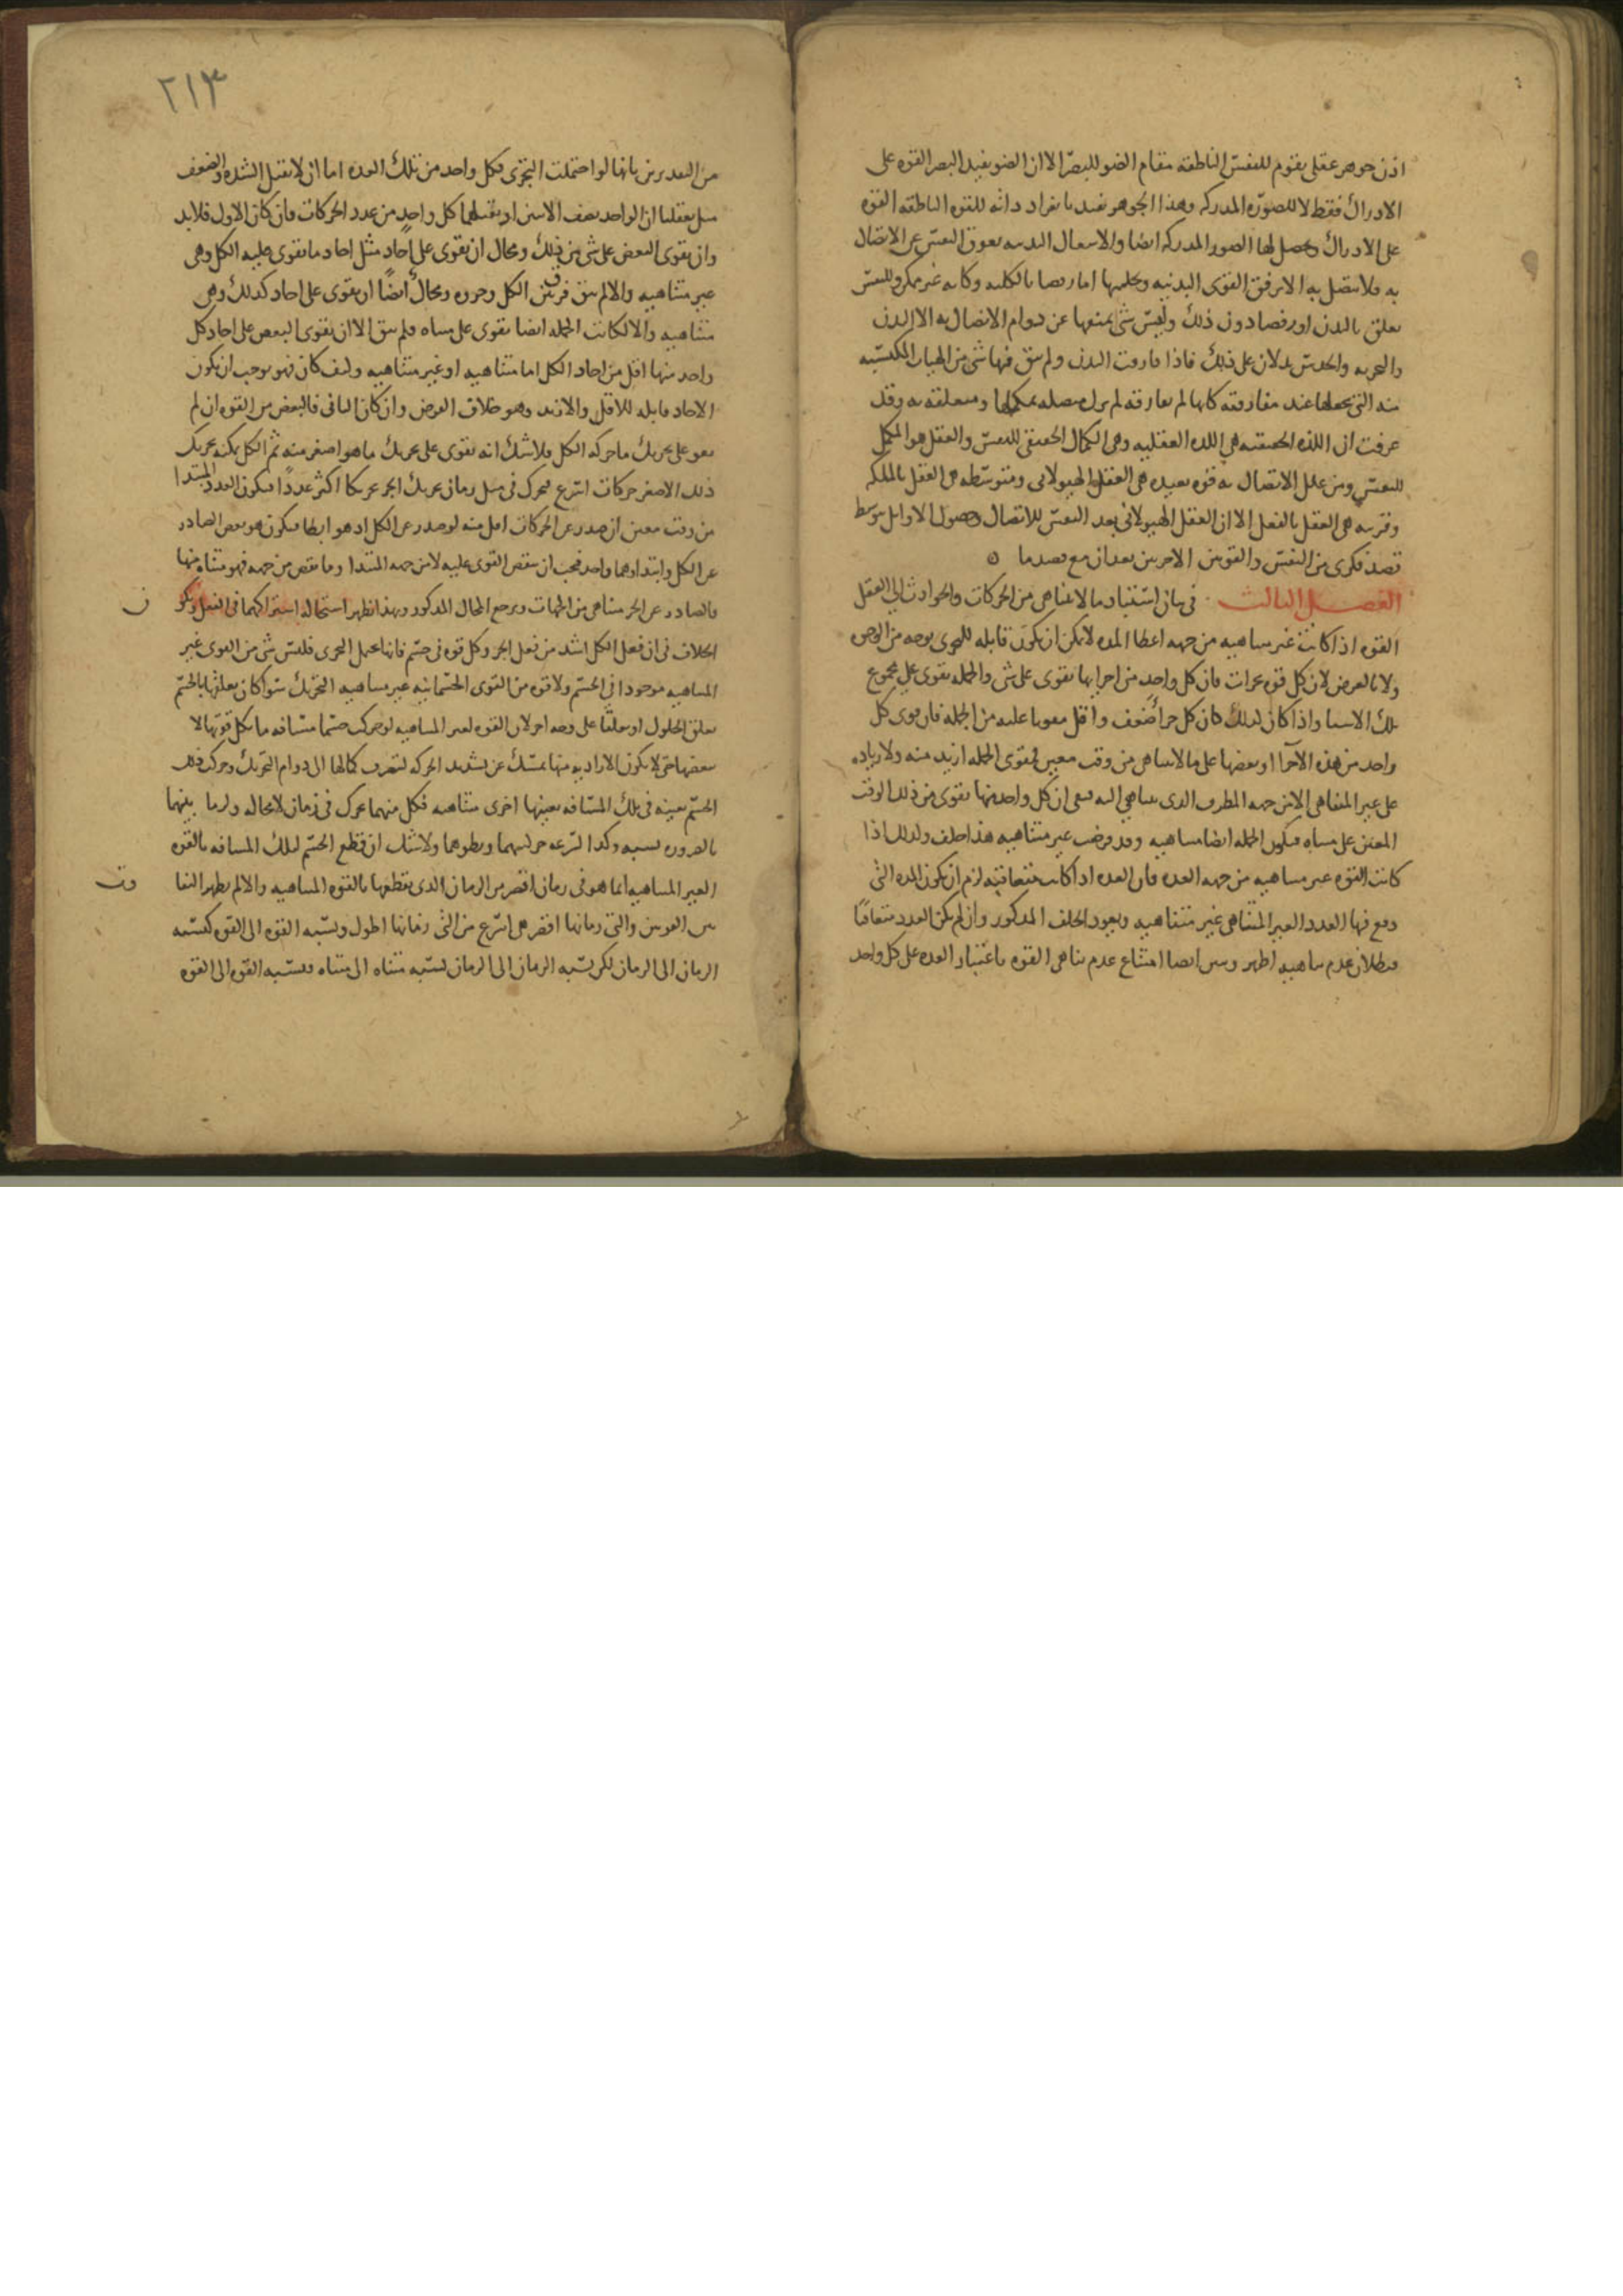 اذن جوهر عقلى يقوم للنفس الناطقه مقام الضو للبصر الا ان الضو يفيد البصر القوه على
الادراك فقط لا للصوره المدركه وهذا الجوهر يفيد بانفراد ذاته للقوه الناطقه القوه
على الادراك وتحصل لها الصور المدركه ايضا والاشتغال البدنيه يعوق النفس عن الاتصال
به فلا يتصل به الا برفض القوى البدنيه وتخليتها اما رفضا بالكليه وكانه غير ممكن وللنفس
تعلق بالبدن او رفضا دون ذلك وليس شى يمنعها عن دوام الاتصال به الا البدن
والتجربه والحدس يدلان على ذلك فاذا فارقت البدن ولم يبق فيها شى من الهيات المكتسبه
منه التى تجعلها عند مفارقته كانها لم تفارقه لم يزل متصله بمكملها ومتعلقه به وقد
عرفت ان اللذه الحقيقيه هى اللذه العقليه وهى الكمال الحقيقى للنفس والعقل هو المكمل
للنفس ومن علل الاتصال به قوه بعيده هى العقل الهيولانى ومتوسطه هى العقل بالملكه
وقريبه هى العقل بالفعل الا ان العقل الهيولانى يعد النفس للاتصال وحصول الاوايل بتوسط
قصد فكرى من النفس والقوتين الاخريين يعدان مع قصد ما ه
الفصل الثالث فى بيان استناد ما لا يتناهى من الحركات والحوادث الى العقل
القوه اذا كانت غير متناهيه من جهه اعطا المده لا يمكن ان يكون قابله للتجزى بوجه من الوجوه
ولا بالعرض لان كل قوه تجزات فان كل واحد من اجزايها تقوى على شى والجمله تقوى على مجموع
تلك الاشيا واذا كان كذلك كان كل جزأ ضعف واقل مقويا عليه من الجمله فان قوى كل
واحد من هذه الاجزا او بعضها على ما لا يتناهى من وقت معين فتقوى الجمله ازيد منه ولا زياده
على غير المتناهى الا من جهه الطرف الذى يتناهى اليه فبقى ان كل واحد منها تقوى من ذلك الوقت
المعين على متناه فيكون الجمله ايضا متناهيه وقد فرضت غير متناهيه هذا خلف وكذلك اذا
كانت القوه غير متناهيه من جهه العده فان العده اذا كانت متعاقبه لزم ان يكون المده التى
وقع فيها العدد الغير المتناهى غير متناهيه ويعود الخلف المذكور وان لم يكن العدد متعاقبا
فبطلان عدم تناهيه اظهر وتبين ايضا امتناع عدم تناهى القوه باعتبار العده على كل واحد
٢١٣
من التقديرين بانها لو احتملت التجزى فكل واحد من تلك العده اما ان لا يقبل الشده والضعف
مثل تعقلنا ان الواحد نصف الاثنين او يقبلهما كل واحد من عدد الحركات فان كان الاول فلا بد
وان يقوى البعض على شى من ذلك ومحال ان يقوى على احاد مثل احاد ما تقوى عليه الكل وهى
غير متناهيه والا لم يبق فرق بين الكل وجزوه ومحال ايضا ان يقوى على احاد كذلك وهى
متناهيه والا لكانت الجمله ايضا تقوى على متناه فلم يبق الا ان يقوى البعض على احاد كل
واحد منها اقل من احاد الكل اما متناهيه او غير متناهيه وكيف كان فهو يوجب ان يكون
الاحاد قابله للاقل والازيد وهو خلاف الفرض وان كان الثانى فالبعض من القوه ان لم
يقو على تحريك ما حركه الكل فلا شك انه يقوى على تحريك ما هو اصغر منه ثم الكل يمكنه تحريك
ذلك الاصغر حركات اسرع فيحرك فى مثل زمان تحريك الجز تحريكا اكثر عددا فيكون العدد المبتدا
من وقت معين ان صدر عن الحركات اقل منه لو صدر عن الكل اذ هو ابطا فيكون هو بعض الصادر
عن الكل وابتداوهما واحد فيجب ان ينقص القوى عليه لا من جهه المبتدا وما نقص من جهه فهو متناه منها
فالصادر عن الجز متناهى من الجهات ويرجع المحال المذكور وبهذا تظهر استحاله اشتراكهما فى الفعل ويكون
الخلاف فى ان فعل الكل اشد من فعل الجز وكل قوه فى جسم فانها تحتمل التجزى فليس شى من القوى غير
المتناهيه موجودا فى الجسم ولا قوه من القوى الجسمانيه غير متناهيه التحريك سوا كان تعلقها بالجسم
تعلق الحلول او تعلقا على وجه اخر لان القوه الغير المتناهيه لو حركت جسما مسافه ما بكل قوتها لا
ببعضها حتى لا يكون الاراديه منها تمسك عن تشديد الحركه لتصرف كمالها الى دوام التحريك وحرك ذلك
الجسم بعينه فى تلك المسافه بعينها اخرى متناهيه فكل منهما تحرك فى زمان لا محاله ولزما بينهما
بالضروره نسبه وكذا لسرعه حركتيهما وبطوهما ولا شك ان قطع الجسم لتلك المسافه بالقوه
الغير المتناهيه انما هو فى زمان اقصر من الزمان الذى يقطعها بالقوه المتناهيه والا لم يظهر التفاوت
بين القوتين والتى زمانها اقصر هى اسرع من التى زمانها اطول ونسبه القوه الى القوه كنسبه
الزمان الى الزمان لكن نسبه الزمان الى الزمان نسبه متناه الى متناه فنسبه القوه الى القوه